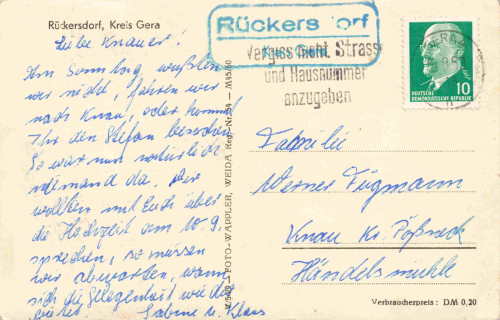 Rückersdorf, Kreis Gera
Liebe Knauer!
Am Sonntag wußten
wir nicht, fahren wir
nach Knau, oder kommt
Ihr den Stefan besuchen
So war nun natürlich
niemand da. Wir
wollten mit Euch über
die Hochzeit am 10.9.
sprechen, so müssen
wir abwarten, wann
sich die Gelegenheit wieder
bietet. Sabine u. Klaus
V 5409 FOTO-WAPPLER, WEIDA
Rückersdorf
Kr. Gera
Vergiss nicht, Strasse
und Hausnummer
anzugeben
GERA
10
DEUTSCHE
DEMOKRATISCHE REPUBLIK
Familie
Werner Fügmann
Knau Kr. Pößneck
Händelsmühle
Verbraucherpreis: DM 0,20